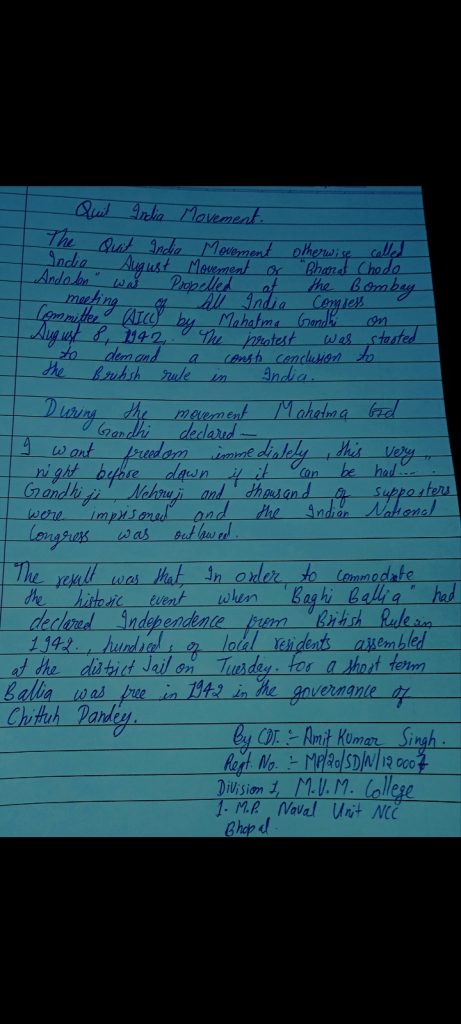 Quit India Movement.
The Quit India Movement otherwise called
India August Movement or "Bharat Chodo
Andolan" was Propelled at the Bombay
meeting of All India Congress
Committee (AICC) by Mahatma Gandhi on
August 8, 1942. The protest was started
to demand a conclusion to
the British rule in India.
During the movement Mahatma
Gandhi declared —
I want freedom immediately, this very
night before dawn if it can be had....."
Gandhiji, Nehruji and thousand of supporters
were imprisoned and the Indian National
Congress was outlawed.
"The result was that, In order to commodate
the historic event when "Baghi Ballia" had
declared Independence from British Rule in
1942., hundreds of local residents assembled
at the district Jail on Tuesday. for a short term
Ballia was free in 1942 in the governance of
Chittuh Pandey.
By CDT. :- Amit Kumar Singh.
Regt. No. :- MP/20/SD/N/120007
Division 1, M.V.M. College
1. M.P. Naval Unit NCC
Bhopal.